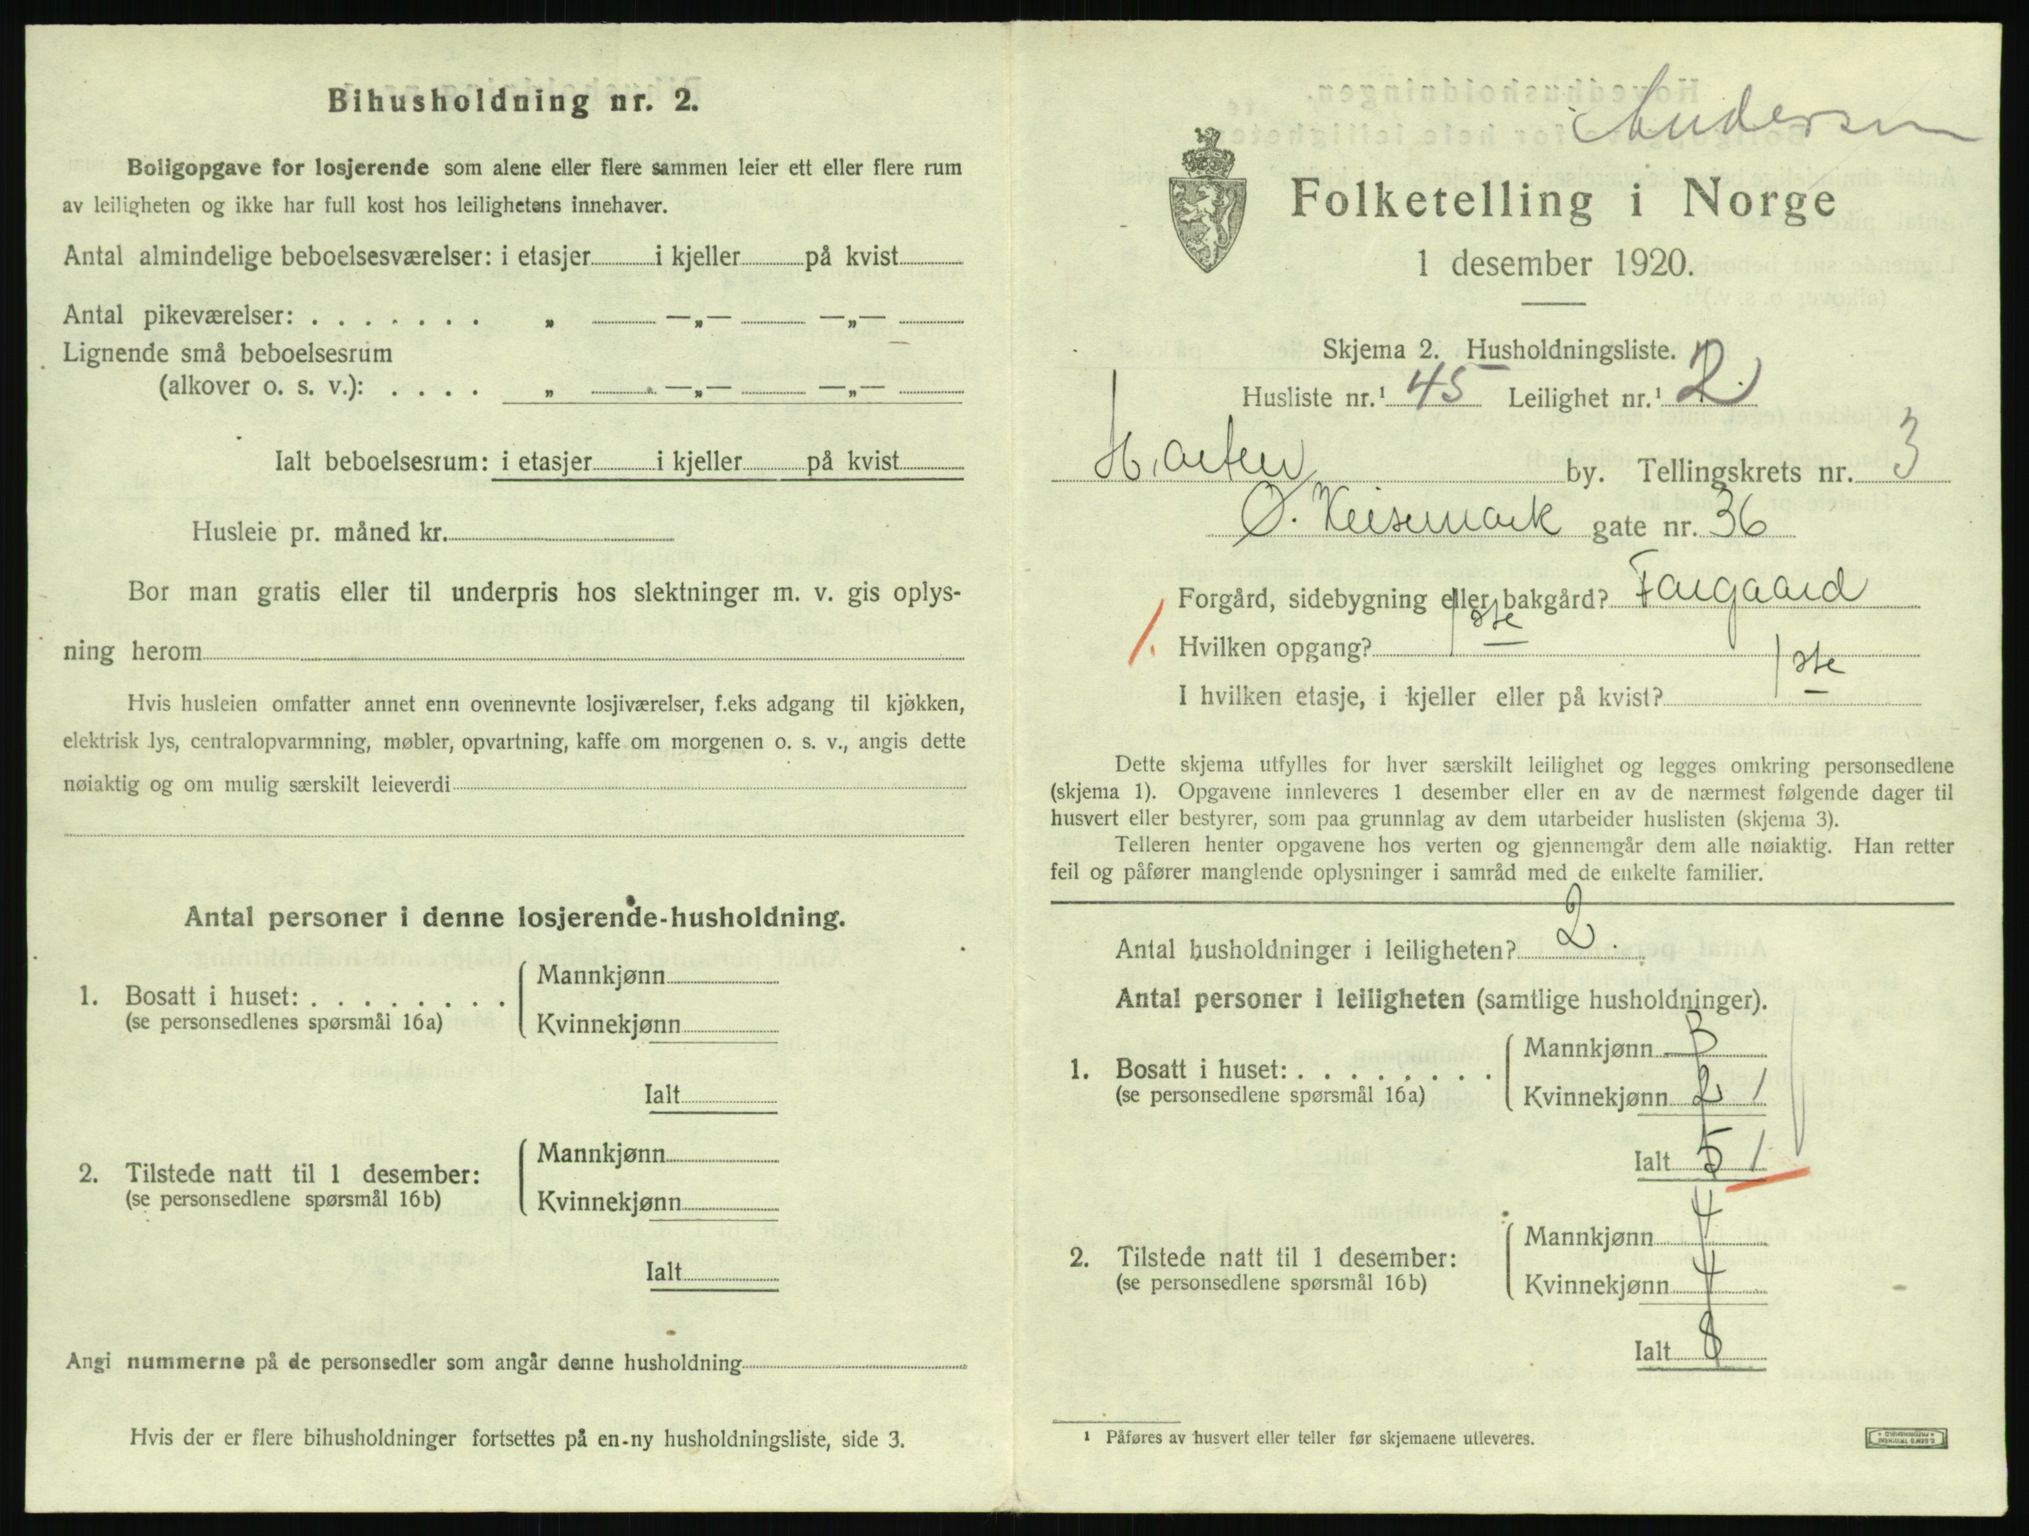 Bihusholdning nr. 2.
Boligopgave for losjerende som alene eller flere sammen leier ett eller flere rum
av leiligheten og ikke har full kost hos leilighetens innehaver.
Antal almindelige beboelsesværelser: i etasjer i kjeller på kvist
Antal pikeværelser: . . . . . . . „ —„— —„—
Lignende små beboelsesrum
(alkover o. s. v.): . . . . „ —„— —„—
Ialt beboelsesrum: i etasjer i kjeller på kvist
Husleie pr. måned kr.
Bor man gratis eller til underpris hos slektninger m. v. gis oplys-
ning herom
Hvis husleien omfatter annet enn ovennevnte losjiværelser, f.eks adgang til kjøkken,
elektrisk lys, centralopvarmning, møbler, opvartning, kaffe om morgenen o. s. v., angis dette
nøiaktig og om mulig særskilt leieverdi
Antal personer i denne losjerende-husholdning.
1. Bosatt i huset: . . . . . . . .
(se personsedlenes spørsmål 16a)
Mannkjønn
Kvinnekjønn
Ialt
2. Tilstede natt til 1 desember:
(se personsedlene spørsmål 16b)
Mannkjønn
Kvinnekjønn
Ialt
Angi nummerne på de personsedler som angår denne husholdning
Hvis der er flere bihusholdninger fortsettes på en ny husholdningsliste, side 3.
Andersen
Folketelling i Norge
1 desember 1920.
Skjema 2. Husholdningsliste.
Husliste nr.¹ 45 Leilighet nr.¹ 2
Horten by. Tellingskrets nr. 3
Ø. Keisemark gate nr. 36
Forgård, sidebygning eller bakgård? Forgaard
1.
Hvilken opgang? 1ste
I hvilken etasje, i kjeller eller på kvist? 1ste
Dette skjema utfylles for hver særskilt leilighet og legges omkring personsedlene
(skjema 1). Opgavene innleveres 1 desember eller en av de nærmest følgende dager til
husvert eller bestyrer, som paa grunnlag av dem utarbeider huslisten (skjema 3).
Telleren henter opgavene hos verten og gjennemgår dem alle nøiaktig. Han retter
feil og påfører manglende oplysninger i samråd med de enkelte familier.
Antal husholdninger i leiligheten? 2.
Antal personer i leiligheten (samtlige husholdninger).
1. Bosatt i huset: . . . . . . . .
(se personsedlene spørsmål 16a)
Mannkjønn 3
Kvinnekjønn 2 1
Ialt 5 1
2. Tilstede natt til 1 desember:
(se personsedlene spørsmål 16b)
Mannkjønn 4
Kvinnekjønn 4
Ialt 8
¹ Påføres av husvert eller teller før skjemaene utleveres.